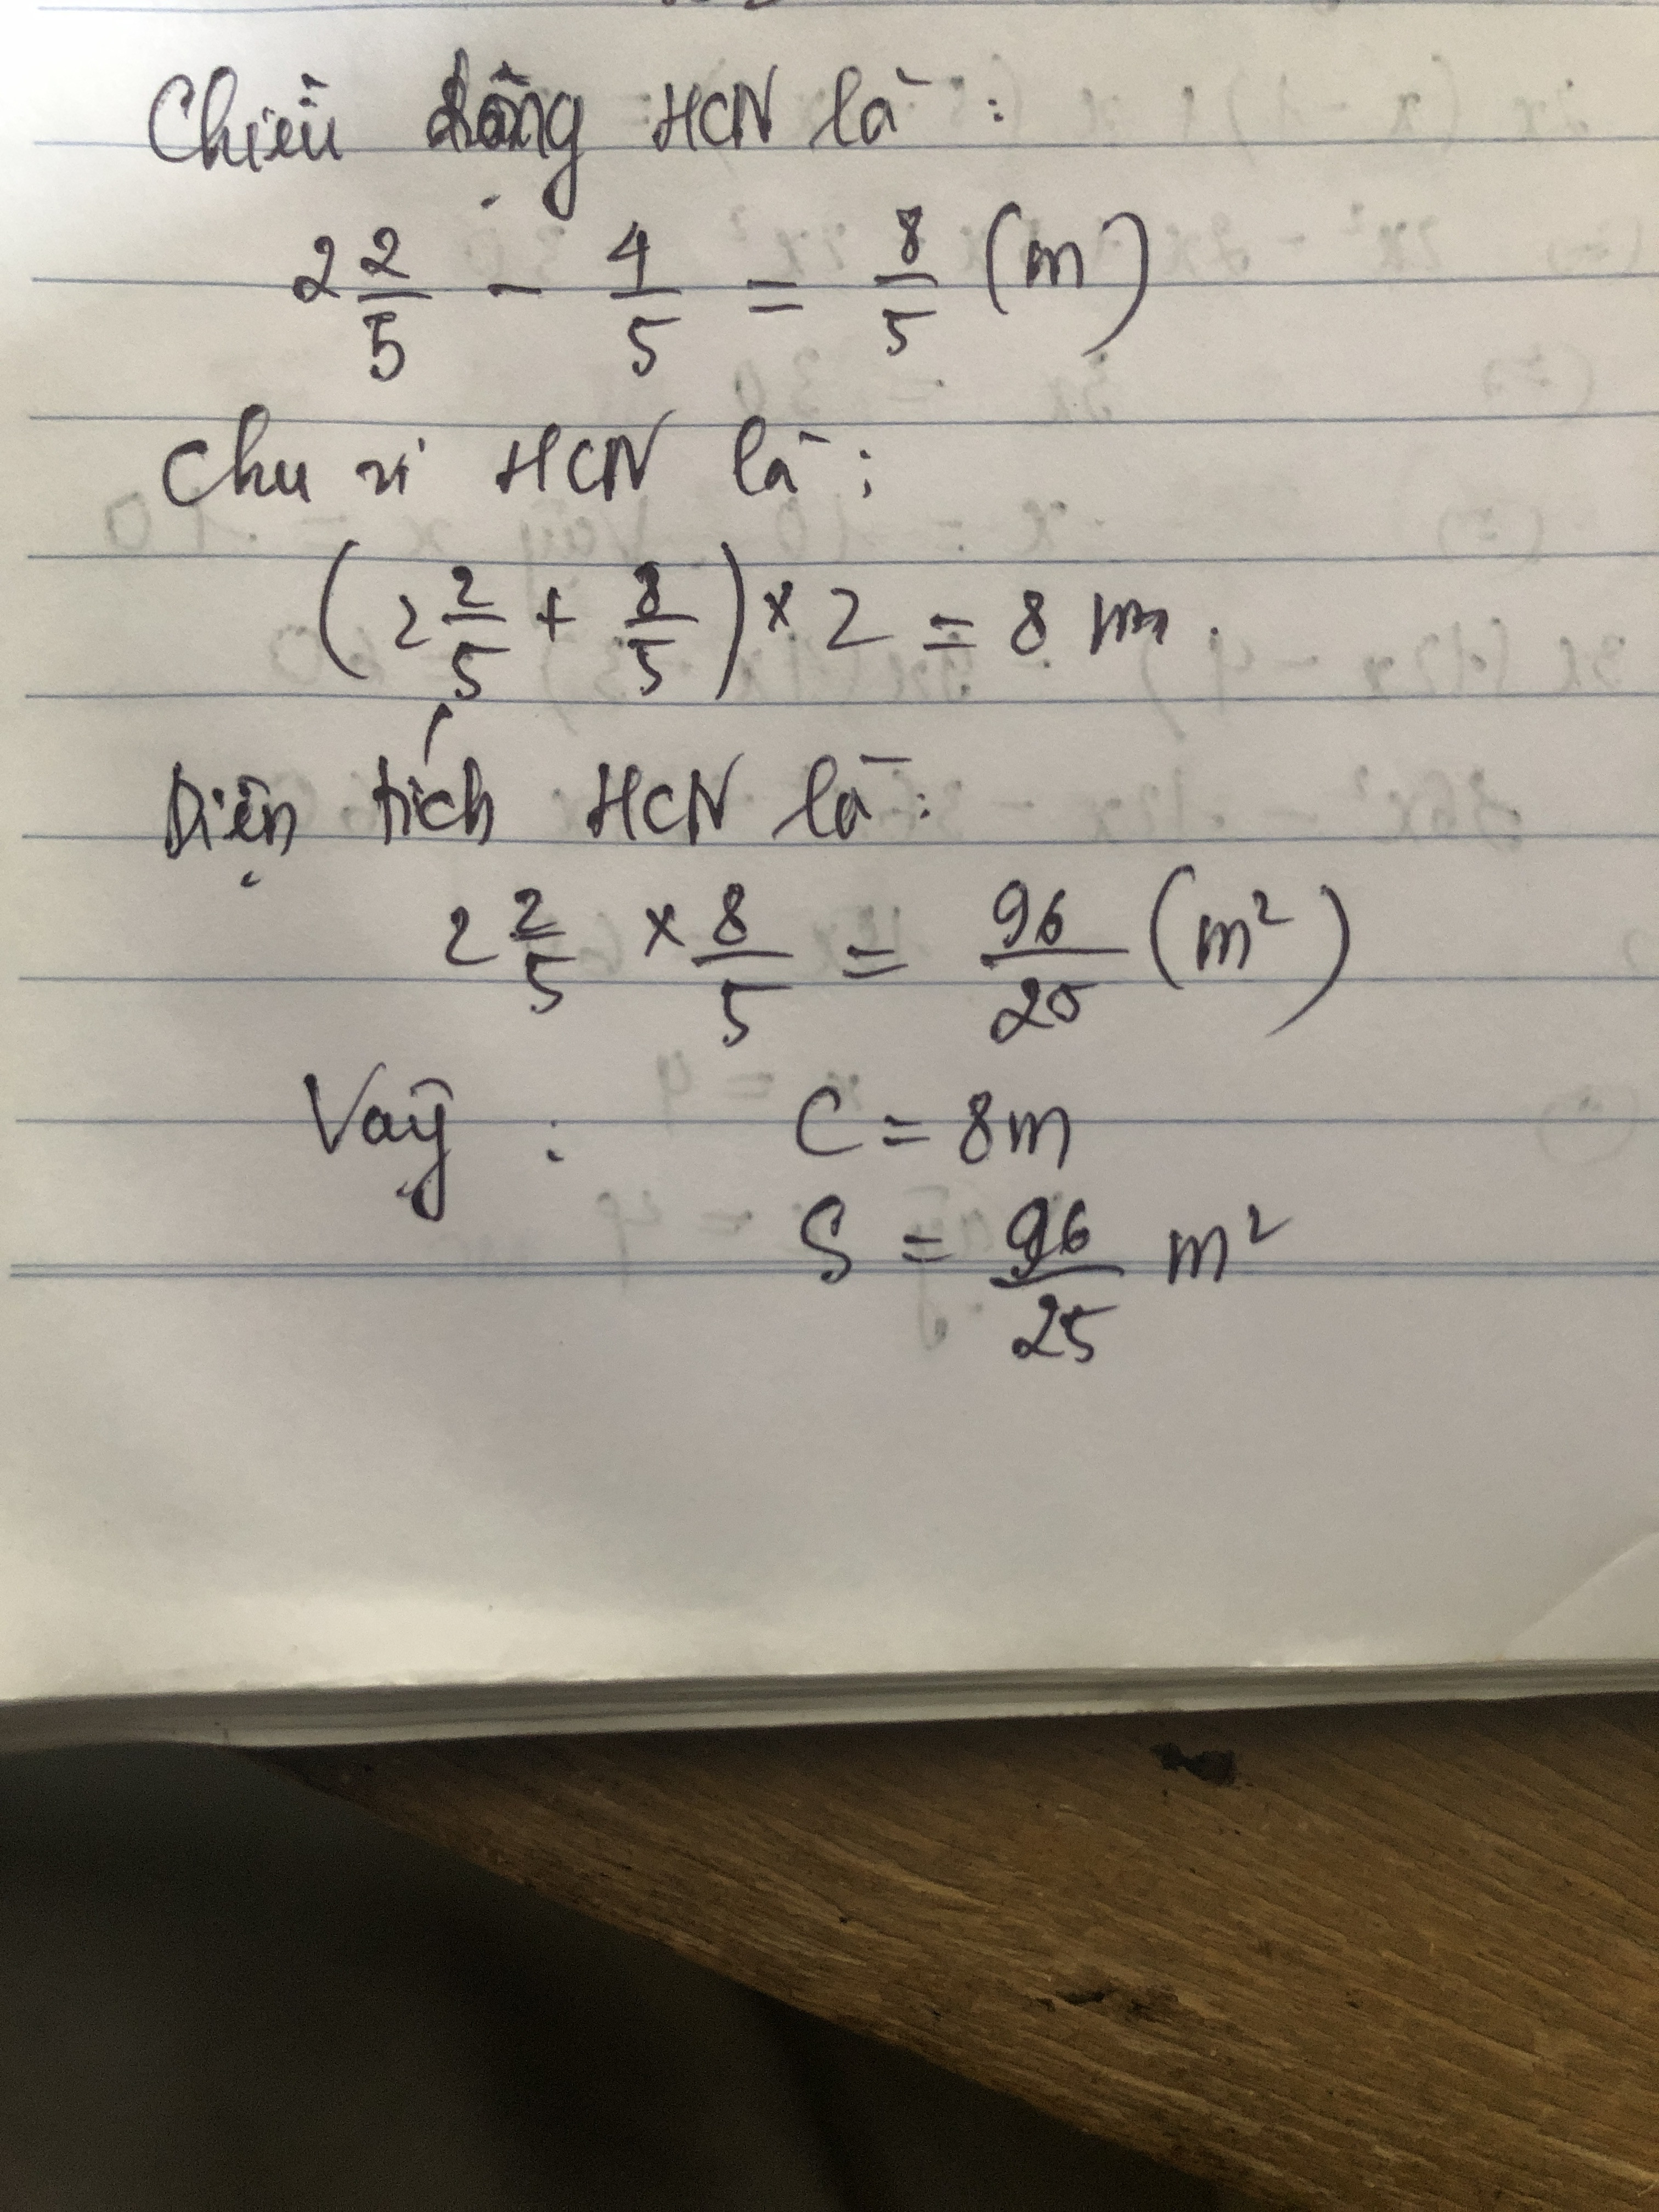 Chiều rộng HCN là:
2 2/5 - 4/5 = 8/5 (m)
Chu vi HCN là:
(2 2/5 + 8/5) × 2 = 8 m.
Diện tích HCN là:
2 2/5 × 8/5 = 96/25 (m²)
Vậy: C = 8m
S = 96/25 m²